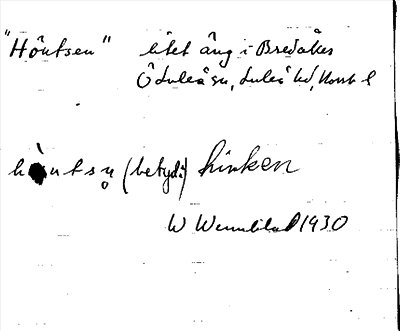 "Höutsen" litet äng i Bredåker
Ö Luleå sn, Luleå hd, Norrb l
hàutsn̥ (betyd.) hinken
W Wennblad 1930